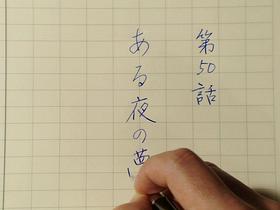 第50話
ある夜の